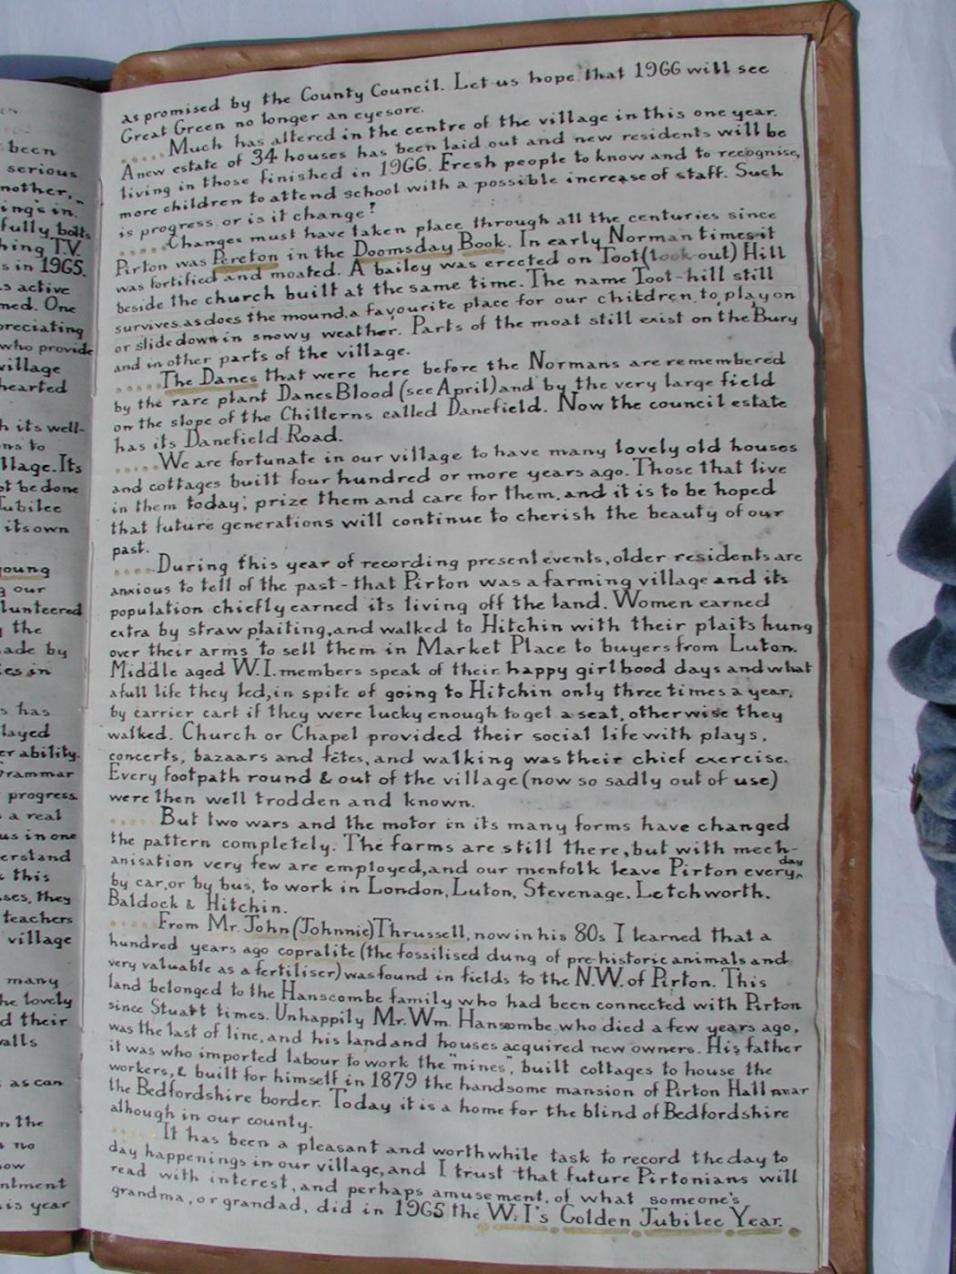 been
serious
nother,
ing's in.
fully bolts
hing T.V.
s in 1965.
s active
ned. One
preciating
who provide
village
hearted
h its well-
ns to
llage. Its
ot be done
Jubilee
its own
oung
g our
lunteered
the
ade by
ies in
s has
layed
er ability.
Grammar
progress
s a real
us in one
erstand
this
ses, they
teachers
village
many
he lovely
d their
valls
as can
n the
s no
now
ntment
his year
as promised by the County Council. Let us hope that 1966 will see
Great Green no longer an eyesore.
.....Much has altered in the centre of the village in this one year.
A new estate of 34 houses has been laid out and new residents will be
living in those finished in 1966. Fresh people to know and to recognise,
more children to attend school with a possible increase of staff. Such
is progress, or is it change?
.....Changes must have taken place through all the centuries since
Pirton was Pereton in the Doomsday Book. In early Norman times it
was fortified and moated. A bailey was erected on Toot (look-out) Hill
beside the church built at the same time. The name Toot-hill still
survives, as does the mound, a favourite place for our children to play on
or slide down in snowy weather. Parts of the moat still exist on the Bury
and in other parts of the village.
.....The Danes that were here before the Normans are remembered
by the rare plant Danes Blood (see April) and by the very large field
on the slope of the Chilterns called Danefield. Now the council estate
has its Danefield Road.
.....We are fortunate in our village to have many lovely old houses
and cottages built four hundred or more years ago. Those that live
in them today, prize them and care for them, and it is to be hoped
that future generations will continue to cherish the beauty of our
past.
....During this year of recording present events, older residents are
anxious to tell of the past - that Pirton was a farming village and its
population chiefly earned its living off the land. Women earned
extra by straw plaiting, and walked to Hitchin with their plaits hung
over their arms to sell them in Market Place to buyers from Luton.
Middle aged W.I. members speak of their happy girlhood days and what
a full life they led, in spite of going to Hitchin only three times a year,
by carrier cart if they were lucky enough to get a seat, otherwise they
walked. Church or Chapel provided their social life with plays,
concerts, bazaars and fêtes, and walking was their chief exercise.
Every footpath round & out of the village (now so sadly out of use)
were then well trodden and known.
....But two wars and the motor in its many forms have changed
the pattern completely. The farms are still there, but with mech-
anisation very few are employed, and our menfolk leave Pirton every day
by car, or by bus, to work in London, Luton, Stevenage, Letchworth,
Baldock & Hitchin.
.....From Mr. John (Johnnie) Thrussell, now in his 80s I learned that a
hundred years ago copralite (the fossilised dung of pre-historic animals and
very valuable as a fertiliser) was found in fields to the N.W. of Pirton. This
land belonged to the Hanscombe family who had been connected with Pirton
since Stuart times. Unhappily Mr. Wm. Hanscombe who died a few years ago,
was the last of line, and his land and houses acquired new owners. His father
it was who imported labour to work the "mines", built cottages to house the
workers, & built for himself in 1879 the handsome mansion of Pirton Hall near
the Bedfordshire border. Today it is a home for the blind of Bedfordshire
alhough in our county.
.....It has been a pleasant and worthwhile task to record the day to
day happenings in our village, and I trust that future Pirtonians will
read with interest, and perhaps amusement, of what someone's
grandma, or grandad, did in 1965 the W.I's Golden Jubilee Year.